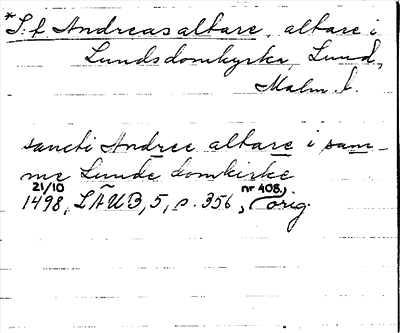 *S:t Andreas altare, altare i
Lunds domkyrka, Lund,
Malm. l.
sancti Andree altare i sam-
me Lunde domkirke
21/10 nr 408,
1498, LÄUB, 5, s. 356, orig.